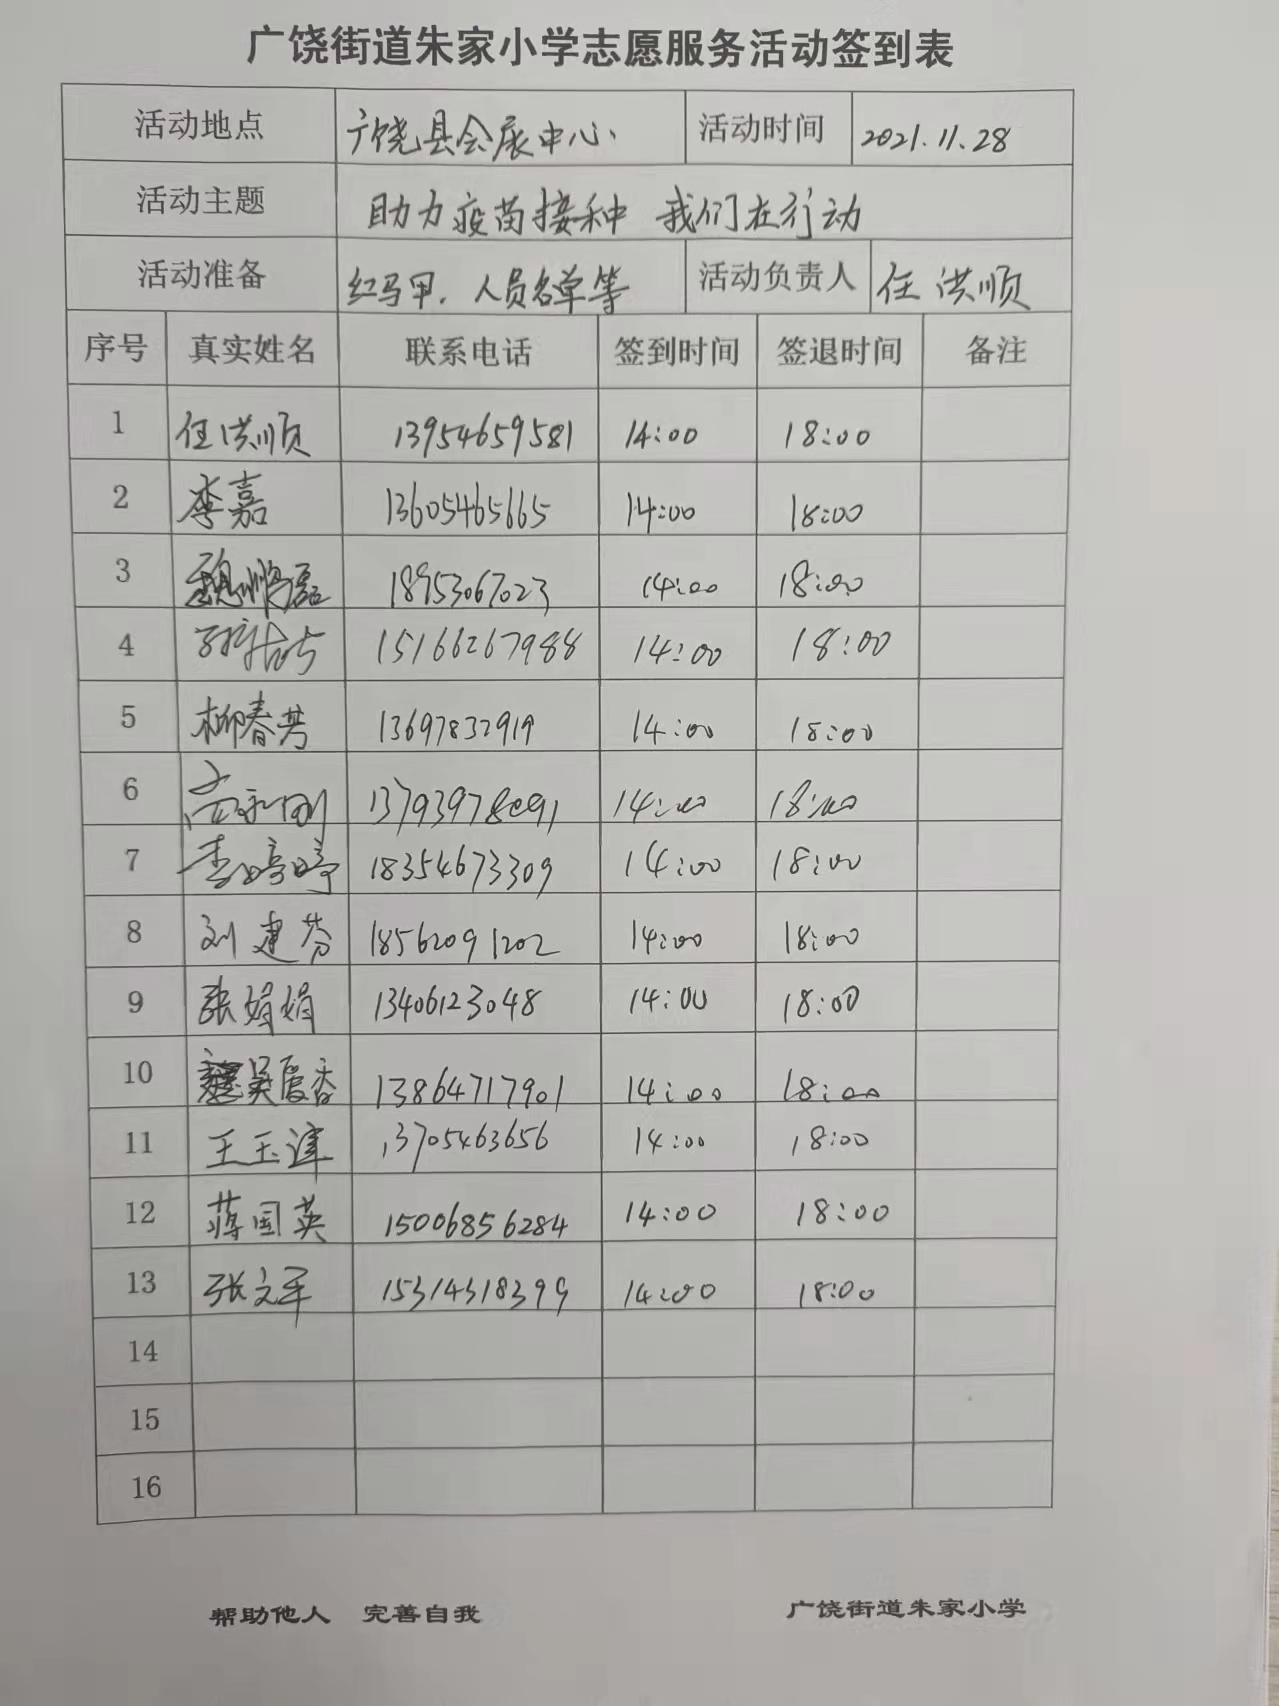 广饶街道朱家小学志愿服务活动签到表
活动地点 广饶县会展中心 活动时间 2021.11.28
活动主题 助力疫苗接种 我们在行动
活动准备 红马甲、人员名单等 活动负责人 任洪顺
序号 真实姓名 联系电话 签到时间 签退时间 备注
1 任洪顺 13954659581 14:00 18:00
2 李嘉 13605465665 14:00 18:00
3 18953067023 14:00 18:00
4 15166267988 14:00 18:00
5 柳春芳 13697832919 14:00 18:00
6 高永刚 13793978091 14:00 18:00
7 李婷婷 18354673309 14:00 18:00
8 刘建芬 18562091202 14:00 18:00
9 张娟娟 13406123048 14:00 18:00
10 吴爱香 13864717901 14:00 18:00
11 王玉津 13705463656 14:00 18:00
12 蒋国英 15006856284 14:00 18:00
13 张文军 15314318399 14:00 18:00
14
15
16
帮助他人 完善自我 广饶街道朱家小学